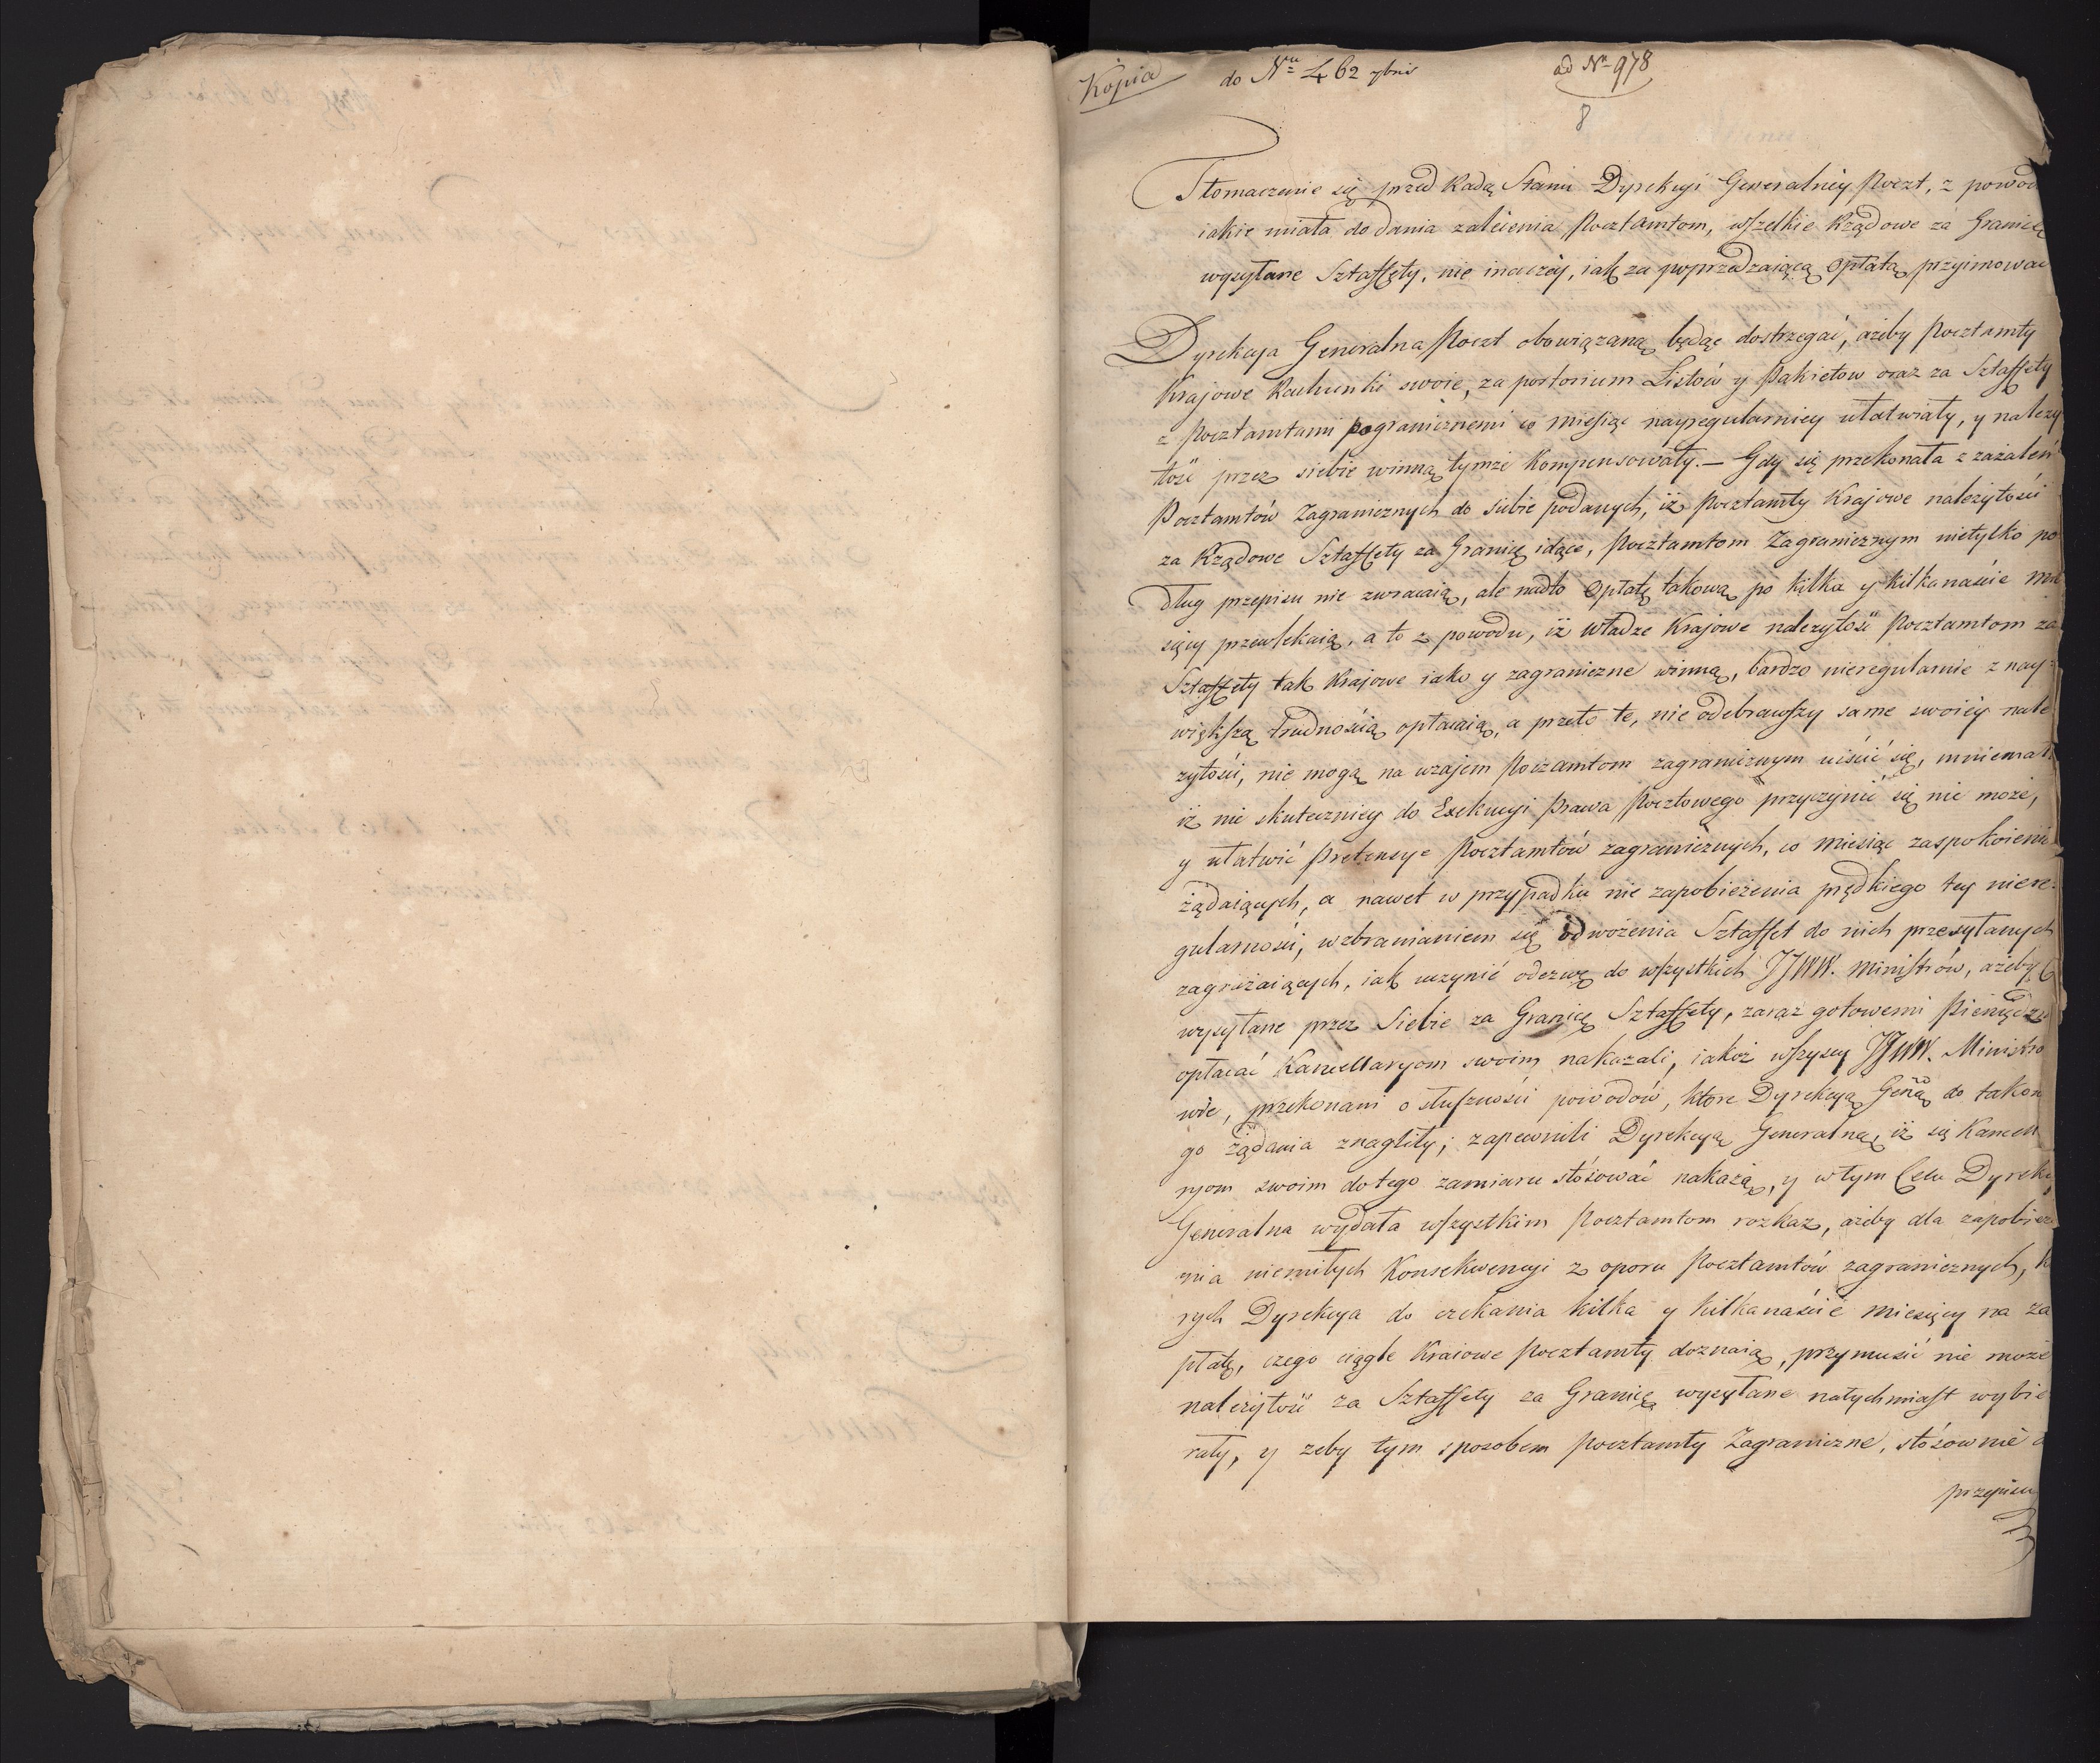 Kopia
do Nru 462 7bris
ad Nr 978
8
Tłomaczenie się przed Radą Stanu Dyrekcyi Generalnéy Poczt, z powod
iakie miała do dania zalécenia Pocztamtom, wszelkie Rządowe za Granicę
wysyłane Sztaffety, nie inaczéy, iak za poprzedzaiącą Opłatą przyimowac
Dyrekcya Generalna Poczt obowiązaną będąc dostrzegać, ażeby Pocztamty
Krajowe Rachunki swoie, za portorium Listów y Pakietow oraz za Sztaffety
z Pocztamtami pogranicznemi co miesiąc nayregularniey ułatwiały, y należy
tość przez siebie winną tymże kompensowały. — Gdy się przekonała z zażaleń
Pocztamtów Zagranicznych do siebie podanych, iż Pocztamty Krajowe należytości
za Rządowe Sztaffety za Granicę idące, Pocztamtom Zagranicznym nietylko po
dług przepisu nie zwracaią, ale nadto Opłatę takową po kilka y kilkanaście mie
sięcy przewlekaią, a to z powodu, iż Władze Krajowe należytość Pocztamtom za
Sztaffety tak Krajowe iako y zagraniczne winną, bardzo nieregularnie z nay-
większą trudnością opłacaią, a przeto te, nie odebrawszy same swoiéy nale
zytości, nie mogą na wzajem Poczamtom zagranicznym uiścić się, mniemał
iż nie skuteczniey do Exekucyi Prawa Pocztowego przyczynić się nie może,
y ułatwić Pretensye Pocztamtów zagranicznych, co miesiąc zaspokoienia
żądaiących, a nawet w przypadku nie zapobieżenia prędkiego tey niere-
gularności, wzbranianiem się odwożenia Sztaffet do nich przesyłanych
zagrażaiących, iak uczynić odezwę do wszystkich JJWW. Ministrów, ażeby
wysyłane przez Siebie za Granicę Sztaffety, zaraz gotowemi Pieniędz
opłacać Kancellaryom swoim nakazali, iakoż wszyscy JJWW. Ministro
wie, przekonani o słuszności powodów, które Dyrekcyą Geńą do takow
go żądania znagliły; zapewnili Dyrekcyą Generalną, iż się Kancell
ryom swoim do tego zamiaru stósować nakażą, y w tym Celu Dyrekc
Generalna wydała wszystkim Pocztamtom rozkaz, ażeby dla zapobieże
nia niemiłych Konsekwencyi z oporu Pocztamtów zagranicznych, k
rych Dyrekcya do czekania kilka y kilkanaście miesięcy na za
płatę, czego ciągle Kraiowe Pocztamty doznaią, przymusić nie może
należytość za Sztaffety za Granicę wysyłane natychmiast wybie
rały, y żeby tym sposobem Pocztamty Zagraniczne, stósownie
przepisu